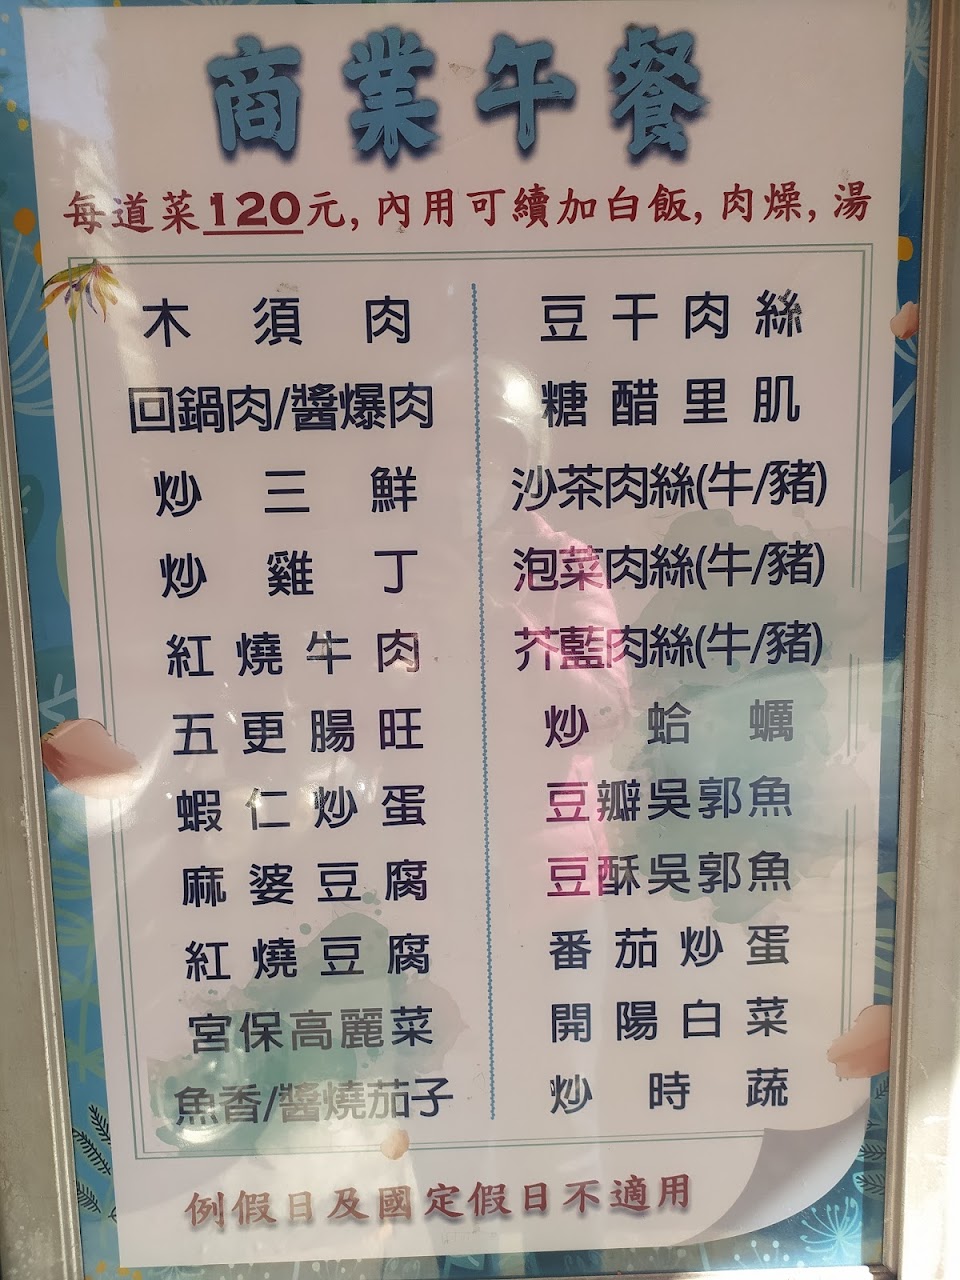 商業午餐
每道菜120元, 內用可續加白飯, 肉燥, 湯
木須肉
回鍋肉/醬爆肉
炒三鮮
炒雞丁
紅燒牛肉
五更腸旺
蝦仁炒蛋
麻婆豆腐
紅燒豆腐
宮保高麗菜
魚香/醬燒茄子
豆干肉絲
糖醋里肌
沙茶肉絲(牛/豬)
泡菜肉絲(牛/豬)
芥藍肉絲(牛/豬)
炒蛤蠣
豆瓣吳郭魚
豆酥吳郭魚
番茄炒蛋
開陽白菜
炒時蔬
例假日及國定假日不適用